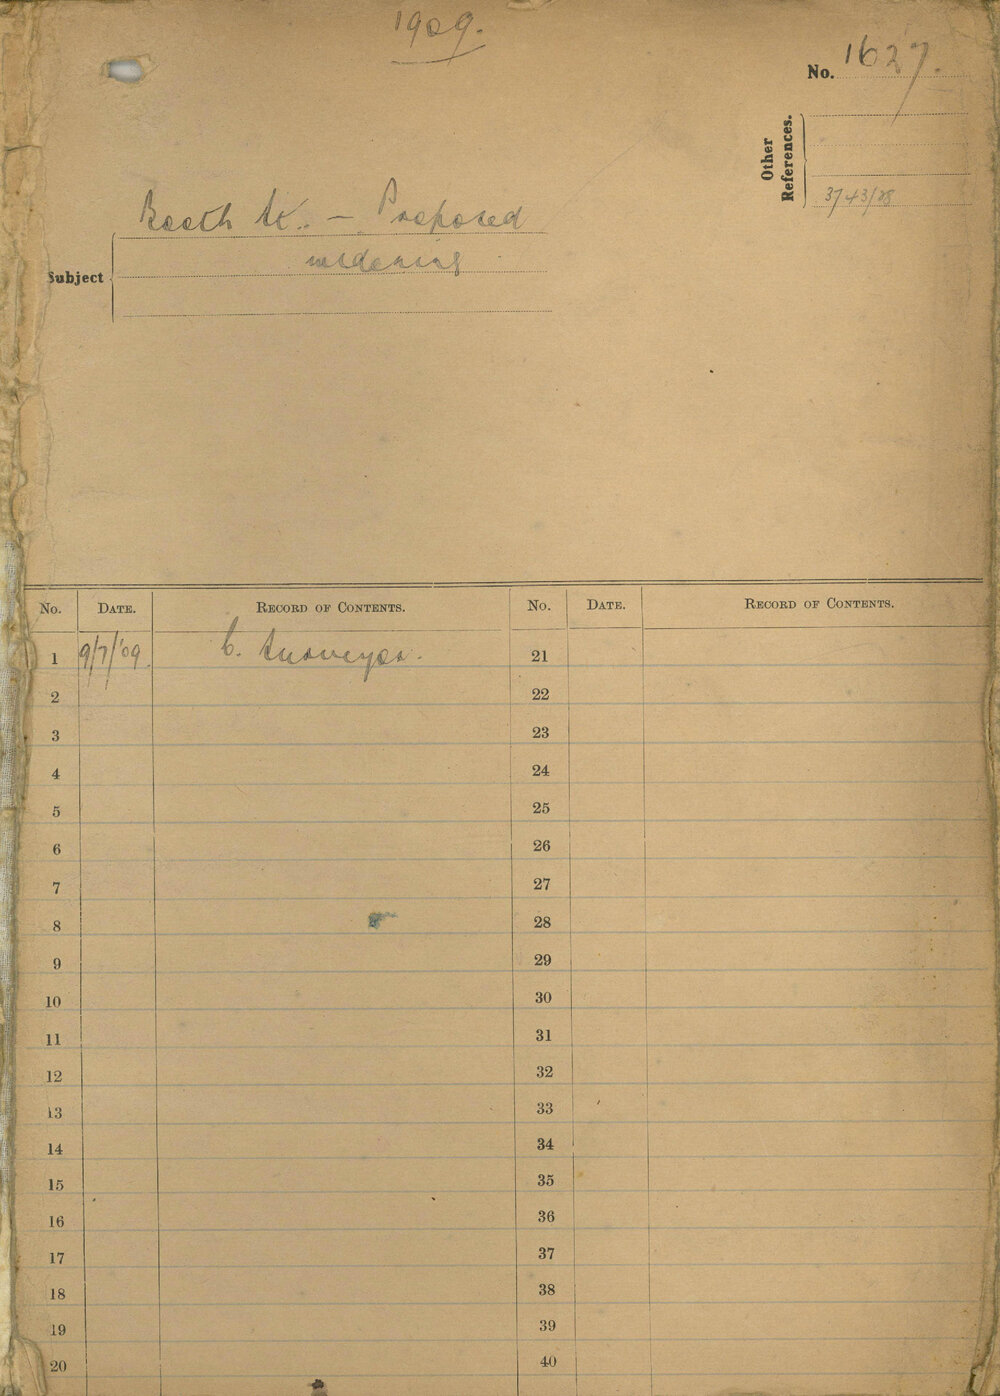 1909.
No. 1627.
Other
References.
3743/08
Booth St. — Proposed
widening
Subject
No. DATE. RECORD OF CONTENTS. No. DATE. RECORD OF CONTENTS.
1 9/7/'09 C. Surveyor. 21
2 22
3 23
4 24
5 25
6 26
7 27
8 28
9 29
10 30
11 31
12 32
13 33
14 34
15 35
16 36
17 37
18 38
19 39
20 40